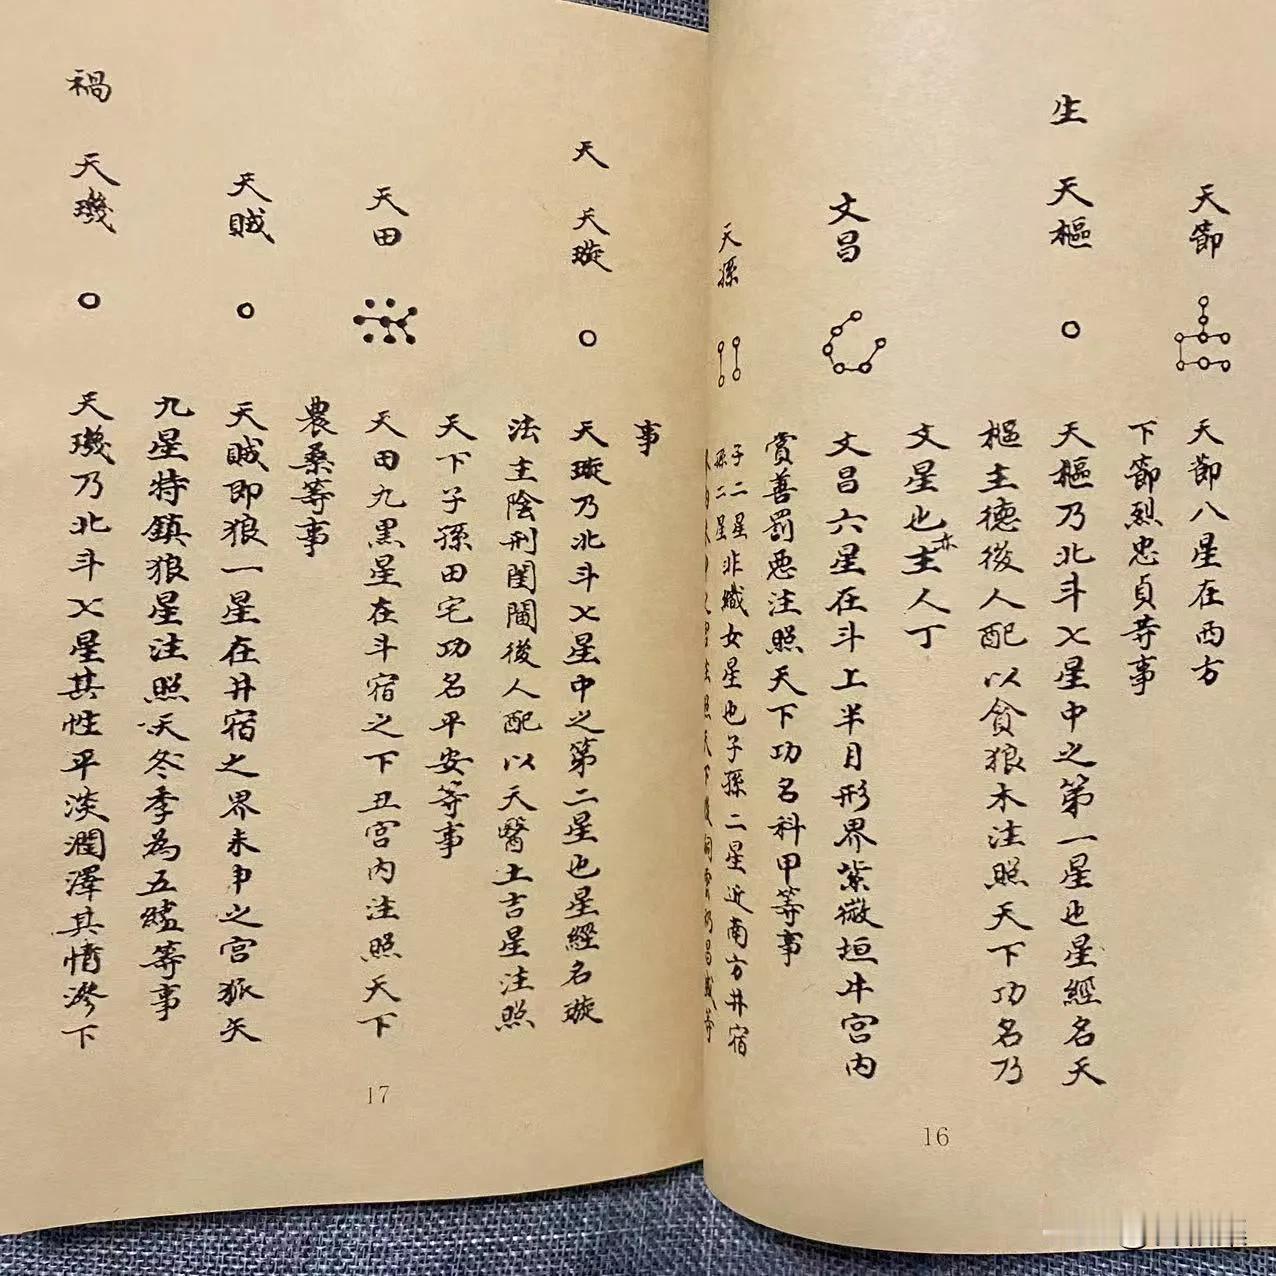 天節
天節八星在西方
下節烈忠貞等事
生 天樞
天樞乃北斗七星中之第一星也星經名天
樞主德後人配以貪狼木注照天下功名乃
文星也亦主人丁
文昌
文昌六星在斗上半月形界紫微垣牛宮内
賞善罰惡注照天下功名科甲等事
天孫
子二星非織女星也子孫二星近南方井宿
孫二星
事
天 天璇
天璇乃北斗七星中之第二星也星經名璇
法主陰刑閨閫後人配以天醫土吉星注照
天下子孫田宅功名平安等事
天田
天田九黑星在斗宿之下丑宮内注照天下
農桑等事
天賊
天賊即狼一星在井宿之界未申之宮狐矢
九星特鎮狼星注照天冬季為五鱸等事
禍 天璣
天璣乃北斗七星其性平淡潤澤其情滲下
17
16